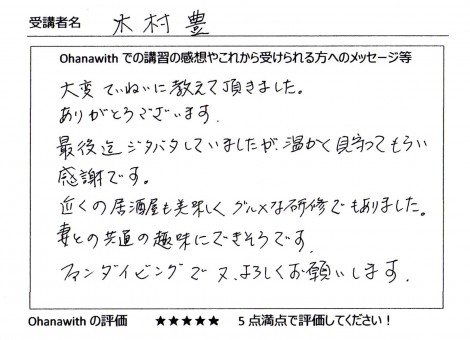 受講者名 木村豊
Ohanawith での講習の感想やこれから受けられる方へのメッセージ等
大変ていねいに教えて頂きました。
ありがとうございます.
最後迄ジタバタしていましたが、温かく見守ってもらい
感謝です。
近くの居酒屋も美味しくグルメな研修でもありました。
妻との共通の趣味にできそうです.
ファンダイビングで又、よろしくお願いします.
Ohanawith の評価 ★★★★★ 5点満点で評価してください！